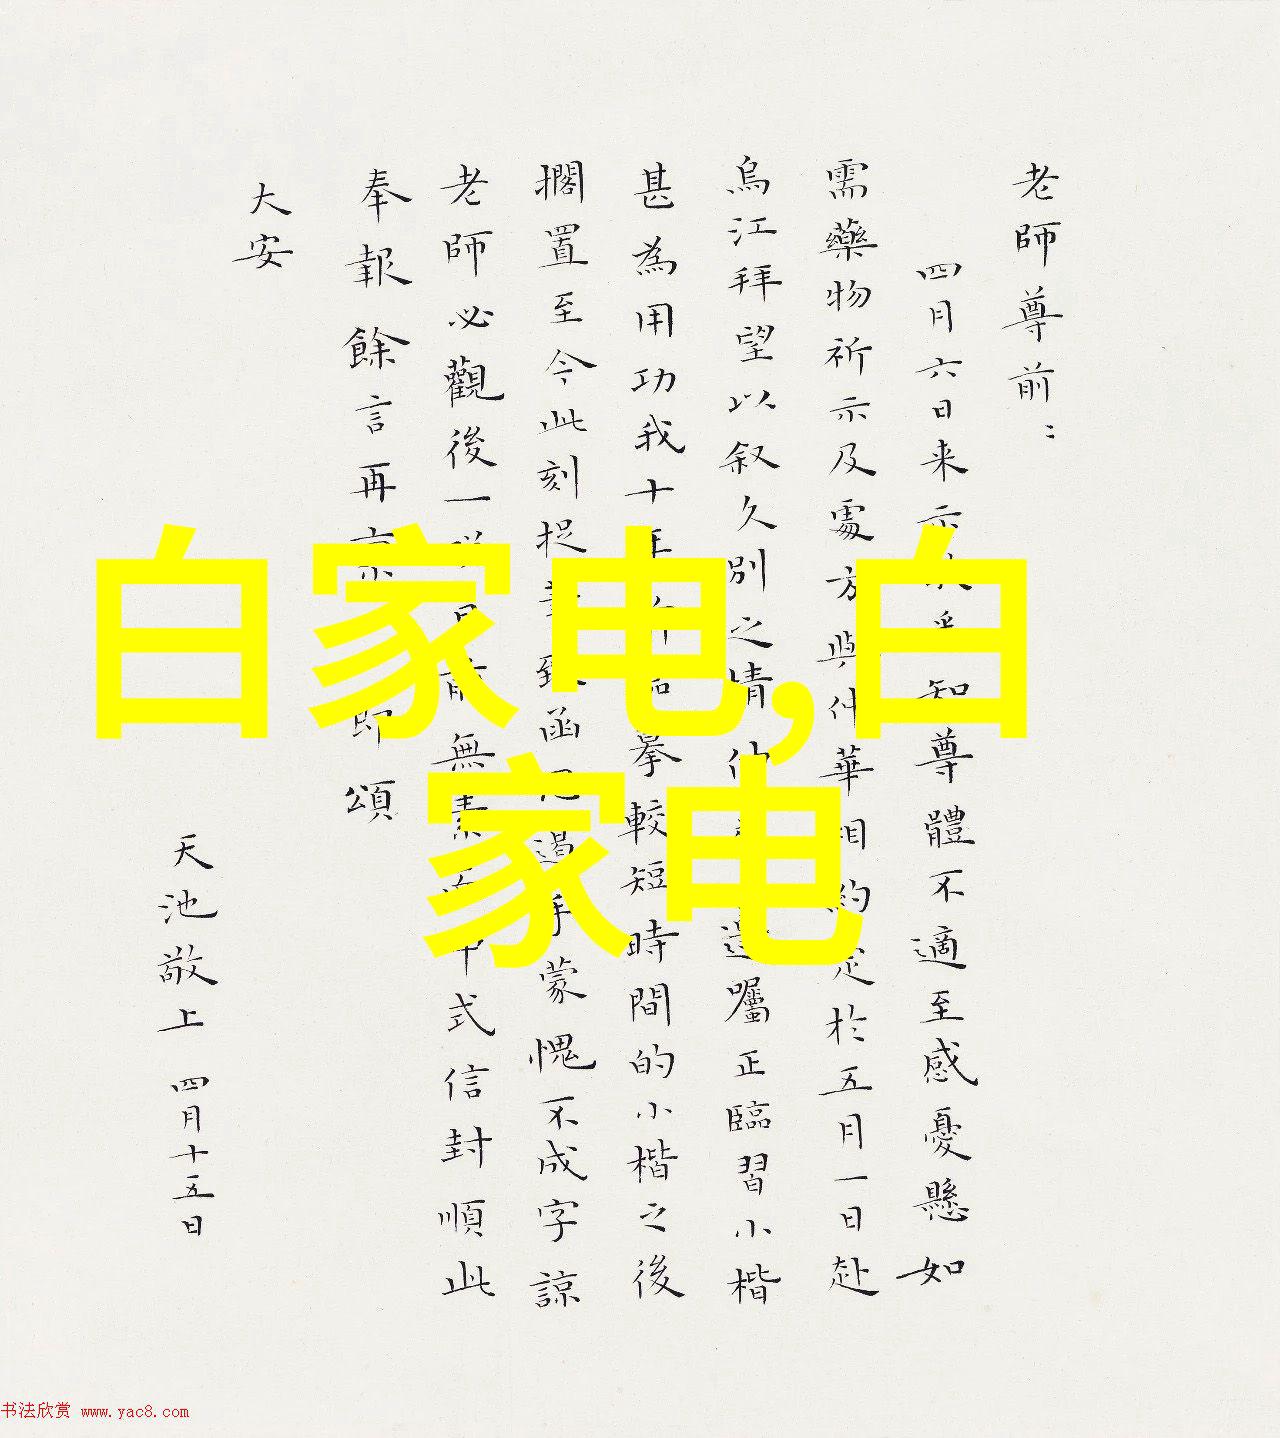 老師尊前：
四月六日来示知尊體不適至感憂懸如
需藥物祈示及處方與仲華相約定於五月一日赴
烏江拜望以叙久別之情囑正臨習小楷
甚為用功我十摹較短時間的小楷之後
擱置至今此刻捉筆致函手蒙愧不成字諒
老師必觀後一無素式信封順此
奉報餘言再即頌
大安
天池敬上 四月十五日
白家电,白
家电
书法欣赏 www.yac8.com